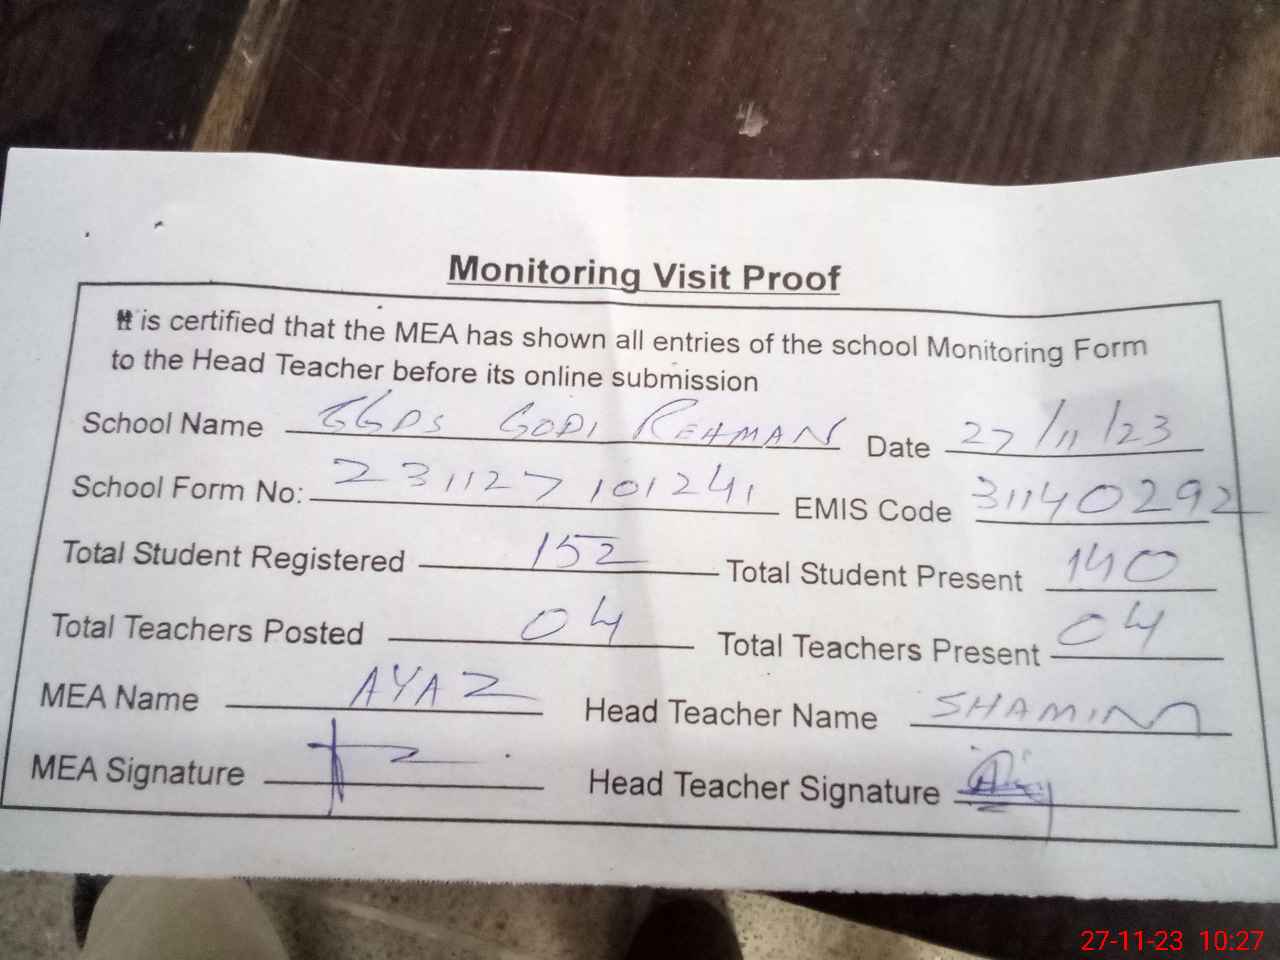 Monitoring Visit Proof
It is certified that the MEA has shown all entries of the school Monitoring Form
to the Head Teacher before its online submission
School Name GGPS GODI REHMAN Date 27/11/23
School Form No: 231127101241 EMIS Code 31140292
Total Student Registered 152 Total Student Present 140
Total Teachers Posted 04 Total Teachers Present 04
MEA Name AYAZ Head Teacher Name SHAMIM
MEA Signature Head Teacher Signature
27-11-23 10:27